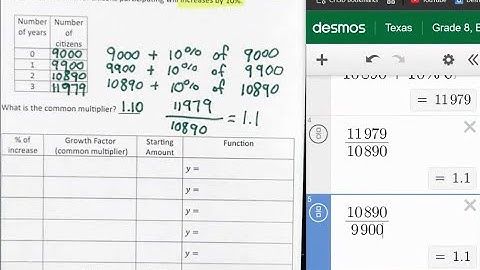 participating will increases by 10%.
Number of years
Number of citizens
0 9000 9000 + 10% of 9000
1 9900 9900 + 10% of 9900
2 10890 10890 + 10% of 10890
3 11979
What is the common multiplier? 1.10 11979/10890 = 1.1
% of increase
Growth Factor (common multiplier)
Starting Amount
Function
y =
y =
y =
y =
y =
YouTube
desmos
Texas
Grade 8,
= 11979
4
11979/10890
= 1.1
5
10890/9900
= 1.1